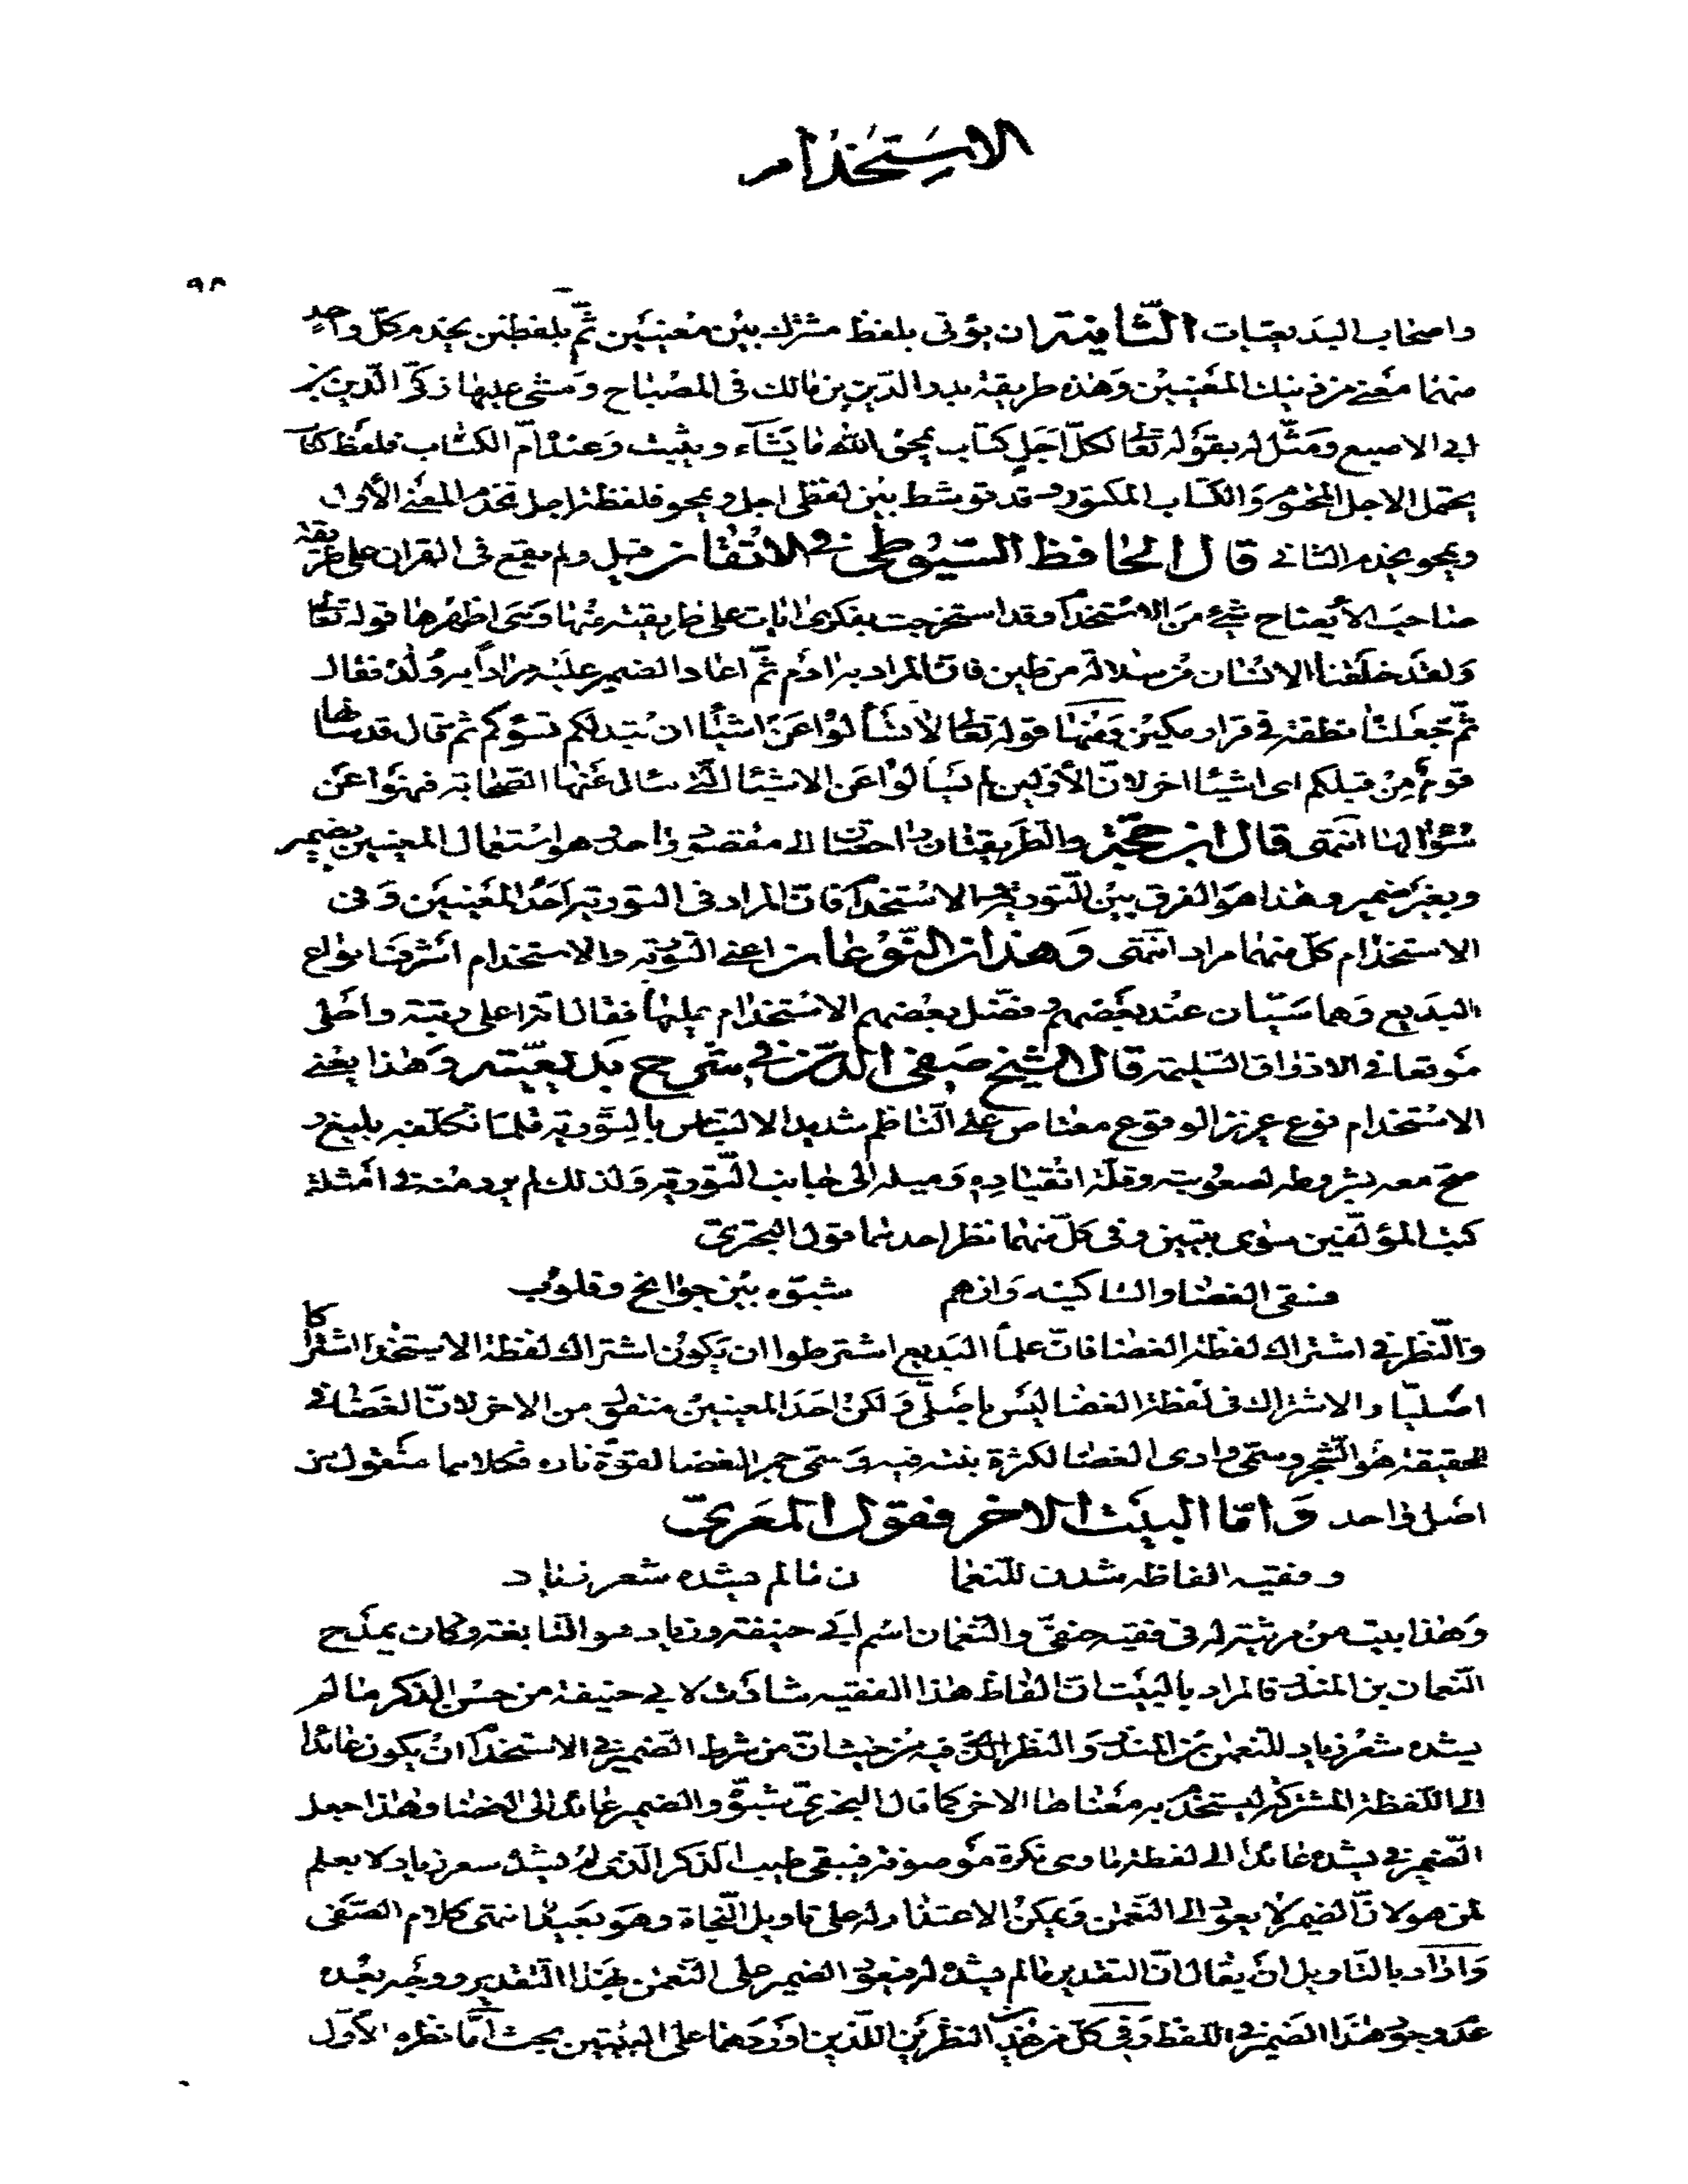 الاستخدام
٩٨
واصحاب البديعيات الثانية ان يؤتى بلفظ مشترك بين معنيين ثم بلفظين يخدم كل واحد
منهما معنى من ذينك المعنيين وهذه طريقة بدر الدين بن مالك فى المصباح ومشى عليها زكى الدين بن
ابى الاصبع ومثل له بقوله تعالى لكل اجل كتاب يمحو الله ما يشاء ويثبت وعنده ام الكتاب فلفظ كتاب
يحتمل الاجل المحتوم والكتاب المكتوب وقد توسط بين لفظى اجل ويمحو فلفظة اجل تخدم المعنى الأول
ويمحو يخدم الثانى قال الحافظ السيوطى فى الاتقان قيل ولم يقع فى القران على طريقة
صاحب الأيضاح شئ من الاستخدام وقد استخرجت بفكرى ايات على طريقته منها وهى اظهرها قوله تعالى
ولقد خلقنا الانسان من سلالة من طين فان المراد به ادم ثم اعاد الضمير عليه مرادا به ولده فقال
ثم جعلناه نطفة فى قرار مكين ومنها قوله تعالى لا تسألوا عن اشياء ان تبد لكم تسؤكم ثم قال قد سألها
قوم من قبلكم اى اشياء اخر لان الأولين لم يسألوا عن الاشياء التى سال عنها الصحابة فنهوا عن
سؤالها انتهى قال ابن حجة والطريقتان راجعتان الى مقصود واحد وهو استعمال المعنيين بضمير
وبغير ضمير وهذا هو الفرق بين التورية والاستخدام فان المراد فى التورية احد المعنيين وفى
الاستخدام كل منهما مراد انتهى وهذان النوعان اعنى التورية والاستخدام اشرف انواع
البديع وهما سيان عند بعضهم وفضل بعضهم الاستخدام عليها فقال انه اعلى رتبة واحلى
موقعا فى الاذواق السليمة قال الشيخ صفى الدين فى شرح بديعيته وهذا يعنى
الاستخدام نوع عزيز الوقوع معتاص على الناظم شديد الالتباس بالتورية قلما تكلفه بليغ و
صح معه بشروطه لصعوبته وقلة انقياده وميله الى جانب التورية ولذلك لم يرد منه فى امثلة
كتب المؤلفين سوى بيتين وفى كل منهما نظر احدهما قول البحترى
فسقى الغضا والساكنيه وان هم شبوه بين جوانح وقلوب
والنظر فى اشتراك لفظة الغضا فان علماء البديع اشترطوا ان يكون اشتراك لفظة الاستخدام اشتراكا
اصليا والاشتراك فى لفظة الغضا ليس باصلى ولكن احد المعنيين منقول من الاخر لان الغضا فى
الحقيقة هو الشجر وسمى وادى الغضا لكثرة نبته فيه وسمى جمر الغضا لقوة ناره فكلاهما منقول من
اصل واحد واما البيت الاخر فقول المعرى
وفقيه الفاظه شدن للنعما ن مالم يشده شعر زياد
وهذا بيت من مرثية له فى فقيه حنفى والنعمان اسم ابى حنيفة وزياد هو النابغة وكان يمدح
النعمان بن المنذر فالمراد بالبيت ان الفاظ هذا الفقيه شادت لابى حنيفة من حسن الذكر ما لم
يشده شعر زياد للنعمن بن المنذر والنظر الذى فيه من حيث ان من شرط الضمير فى الاستخدام ان يكون عائدا
الى اللفظة المشتركة ليستخدم به معناها الاخر كما قال البحترى شبوه والضمير عائد الى الغضا وهذا جعل
الضمير فى يشده عائدا الى لفظة ما وهى نكرة موصوفة فيبقى طيب الذكر الذى لم يشده شعر زياد لا يعلم
لمن هو لان الضمير لا يعود الى النعمن ويمكن الاعتذار له على تاويل النحاة وهو بعيد انتهى كلام الصفى
واراد بالتاويل ان يقال ان التقدير مالم يشده له فيعود الضمير على النعمن بهذا التقدير ووجه بعده
عدم وجود هذا الضمير فى اللفظ وفى كل من هذين النظرين اللذين اوردهما على البيتين بحث اما نظره الأول